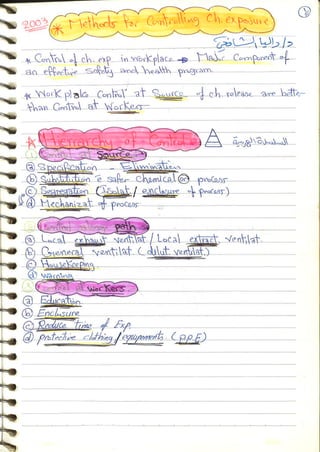 2003
* Methods for Controlling Ch. exposure
د/ داليا الشافعي
* Control of ch. exp. in workplace → Major Component of
an effective safety and health program.
* Work place Control at Source of ch. release are better
than Control at Workers
* Hierarchy of Control
① Control at Source
ⓐ Specification - Elimination
ⓑ Substitution ē safer chemical or process
ⓒ Segregation (isolat. / enclosure of process)
ⓓ Mechanizat. of process
② Control along path
ⓐ Local exhaust ventilat. / Local extract ventilat.
ⓑ General ventilat. (dilut. ventilat.)
ⓒ Housekeeping
ⓓ warning
③ Control at workers
ⓐ Education
ⓑ Enclosure
ⓒ Reduce time of Exp.
ⓓ protective clothing / equipments (P.P.E)